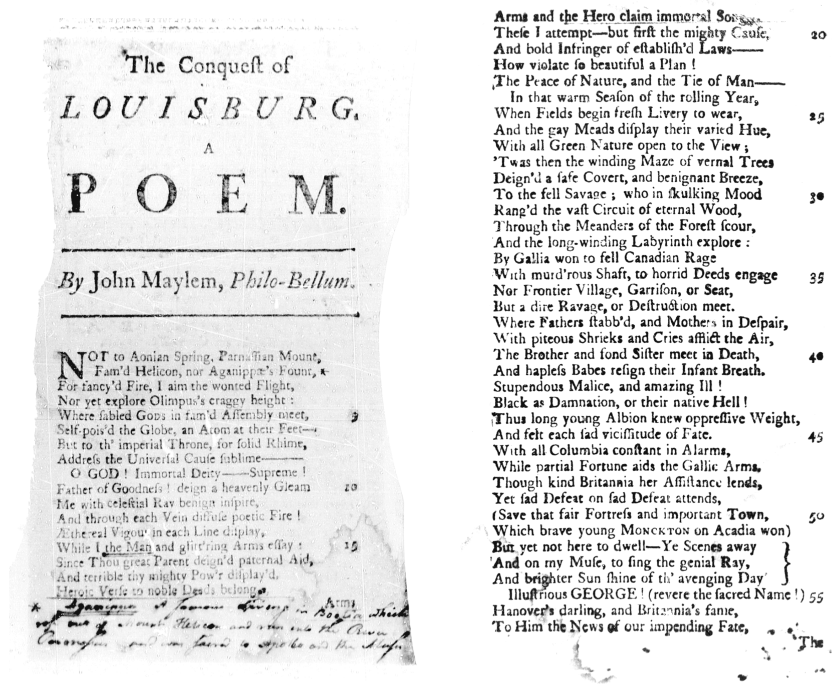 The Conqueſt of
LOUISBURG.
A
POEM.
By John Maylem, Philo-Bellum.
NOT to Aonian Spring, Parnaſſian Mount,
Fam'd Helicon, nor Aganippæ's Fount, *
For fancy'd Fire, I aim the wonted Flight,
Nor yet explore Olimpus's craggy height :
Where fabled Gods in fam'd Aſſembly meet, 5
Self-pois'd the Globe, an Atom at their Feet—
But to th' imperial Throne, for ſolid Rhime,
Addreſs the Univerſal Cauſe ſublime———
O GOD ! Immortal Deity——Supreme !
Father of Goodneſs ! deign a heavenly Gleam 10
Me with celeſtial Ray benign inſpire,
And through each Vein diffuſe poetic Fire !
Æthereal Vigour in each Line diſplay,
While I the Man and glitt'ring Arms eſſay : 15
Since Thou great Parent deign'd paternal Aid,
And terrible thy mighty Pow'r diſplay'd,
Heroic Verſe to noble Deeds belongs,
Arms
* Aganippe A famous Spring in Boeotia which
out of Mount Helicon and run into the River
and was sacred to Apollo and the Muses
Arms and the Hero claim immortal Songs.
Theſe I attempt—but firſt the mighty Cauſe, 20
And bold Infringer of eſtabliſh'd Laws——
How violate ſo beautiful a Plan !
The Peace of Nature, and the Tie of Man——
In that warm Seaſon of the rolling Year,
When Fields begin freſh Livery to wear, 25
And the gay Meads diſplay their varied Hue,
With all Green Nature open to the View ;
'Twas then the winding Maze of vernal Trees
Deign'd a ſafe Covert, and benignant Breeze,
To the fell Savage ; who in ſkulking Mood 30
Rang'd the vaſt Circuit of eternal Wood,
Through the Meanders of the Foreſt ſcour,
And the long-winding Labyrinth explore :
By Gallia won to fell Canadian Rage
With murd'rous Shaft, to horrid Deeds engage 35
Nor Frontier Village, Garriſon, or Seat,
But a dire Ravage, or Deſtruction meet.
Where Fathers ſtabb'd, and Mothers in Deſpair,
With piteous Shrieks and Cries afflict the Air,
The Brother and fond Siſter meet in Death, 40
And hapleſs Babes reſign their Infant Breath.
Stupendous Malice, and amazing Ill !
Black as Damnation, or their native Hell !
Thus long young Albion knew oppreſſive Weight,
And felt each ſad viciſſitude of Fate. 45
With all Columbia conſtant in Alarms,
While partial Fortune aids the Gallic Arms,
Though kind Britannia her Aſſiſtance lends,
Yet ſad Defeat on ſad Defeat attends,
(Save that fair Fortreſs and important Town, 50
Which brave young MONCKTON on Acadia won)
But yet not here to dwell—Ye Scenes away
And on my Muſe, to ſing the genial Ray,
And brighter Sun ſhine of th' avenging Day
Illuſtrious GEORGE ! (revere the ſacred Name !) 55
Hanover's darling, and Britannia's fame,
To Him the News of our impending Fate,
The